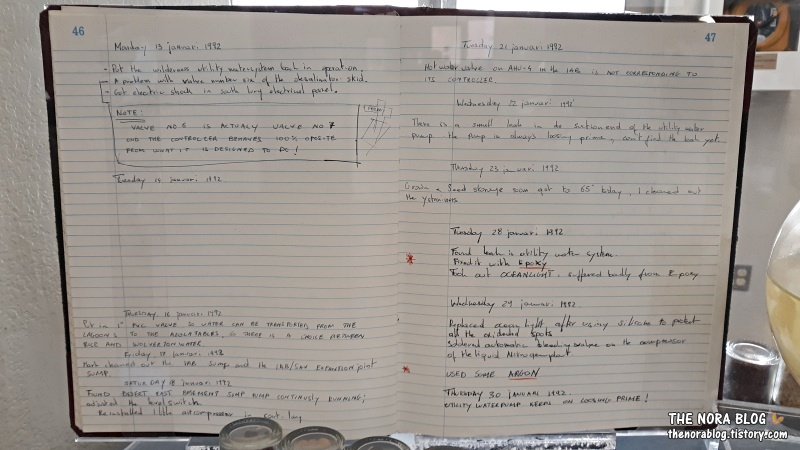 46
Monday 13 januari 1992
- Put the wilderness utility watersystem back in operation.
- A problem with valve number six of the desalinator skid.
- Got electric shock in south lung electrical panel.
NOTE:
VALVE NO 6 IS ACTUALY VALVE NO 7
AND THE CONTROLLER BEHAVES 100% OPOSITE
FROM WHAT IT IS DESIGNED TO DO!
Tuesday 14 januari 1992
Thursday, 16 januari 1992
Put in 1" PVC VALVE, SO WATER CAN BE TRANSFERED FROM THE
LAGOON'S TO THE ALGAE TABLES, SO THERE IS A CHOICE BETWEEN
RICE AND WILDERTON WATER.
Friday 17 januari 1992
Mark cleaned out the IAB sump and the IAB/SAV EXPANSION joint
SUMP
SATURDAY 18 januari 1992
FOUND DEFECT EAST BASEMENT SUMP PUMP CONTINOUSLY RUNNING;
adjusted the level switch
Reinstalled little aircompressor in south lung
47
Tuesday 21 januari 1992
Hot water valve on AHU-4 in the IAB IS NOT CORRESPONDING TO
ITS CONTROLLER.
Wednesday 22 januari 1992
There is a small leak in de suction end of the utility water
pump the pump is always loosing prime, can't find the leak yet.
Thursday 23 januari 1992
Seed storage room got to 65° today, I cleaned out
the
Tuesday 28 januari 1992
Found leak in utility water system.
Fixed it with Epoxy
Took out OCEANLIGHT, suffered badly from Epoxy
Wednesday 29 januari 1992
Replaced ocean light after using silicone to protect
all the oxidated spots
Soldered automatic bleeding valve on the compressor
of the liquid Nitrogen plant
USED SOME ARGON
THURSDAY 30 JANUARI 1992.
UTILITY WATERPUMP KEEPS ON LOOSING PRIME!
THE NORA BLOG
thenorablog.tistory.com